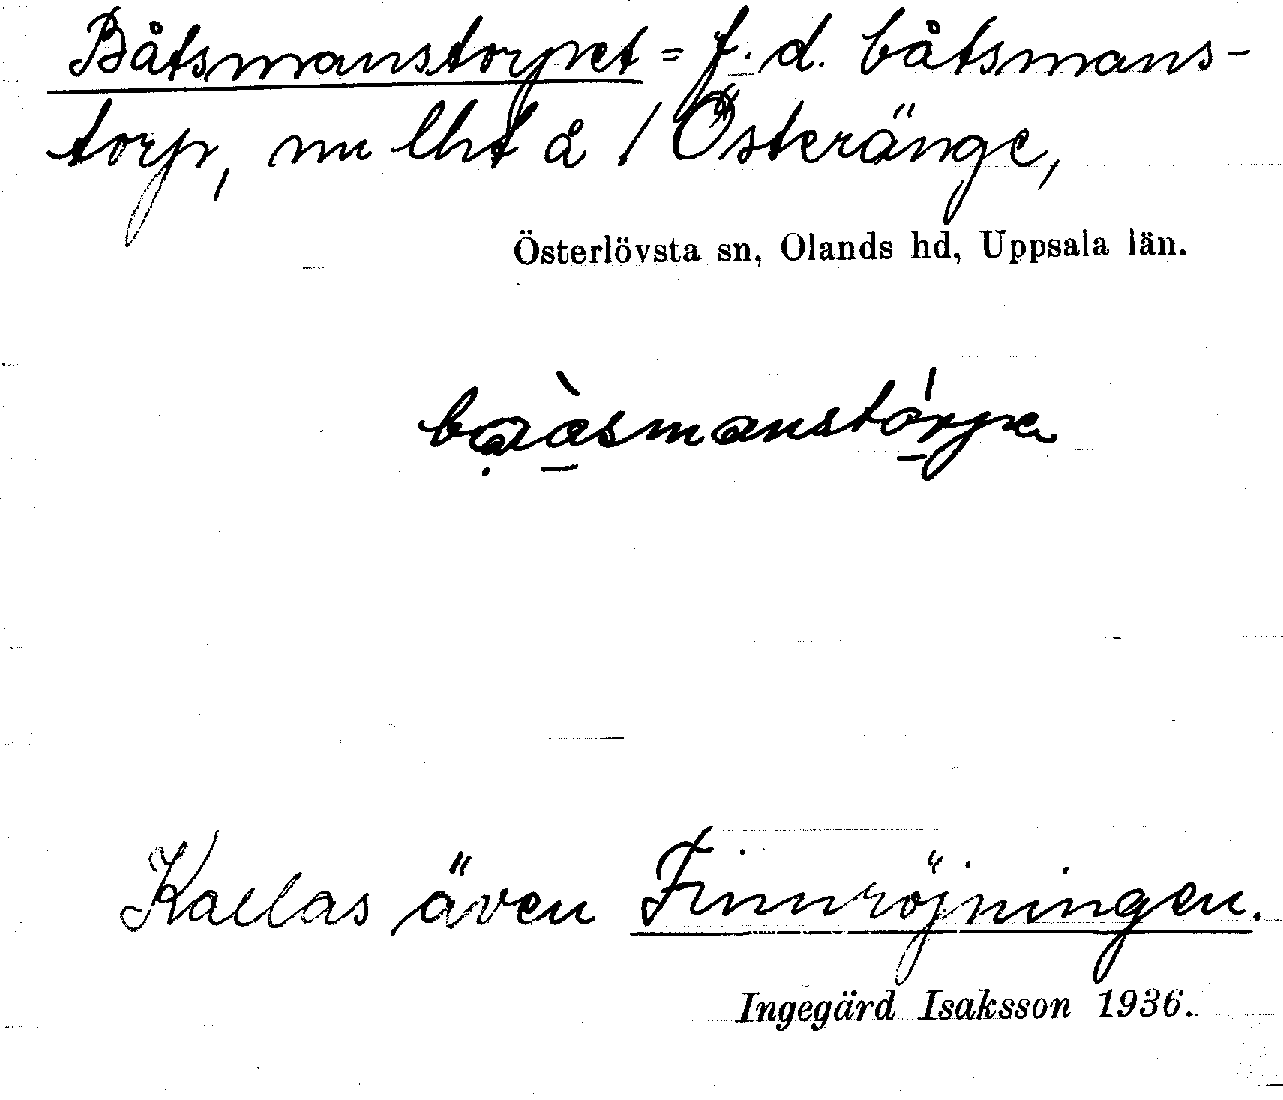 Båtsmanstorpet = f.d. båtsmans-
torp, nu lht å 1 Österänge,
Österlövsta sn, Olands hd, Uppsala län.
Kallas även Finnröjningen.
Ingegärd Isaksson 1936.